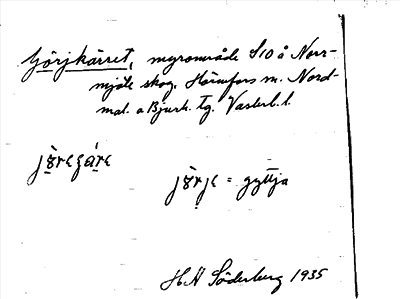 Görjkärret, myrområde S10 å Norr-
mjöle skog. Hörnefors m. Nord-
mal. o Bjurh. tg. Västerb. l.
= gyttja
H.H Söderberg 1935